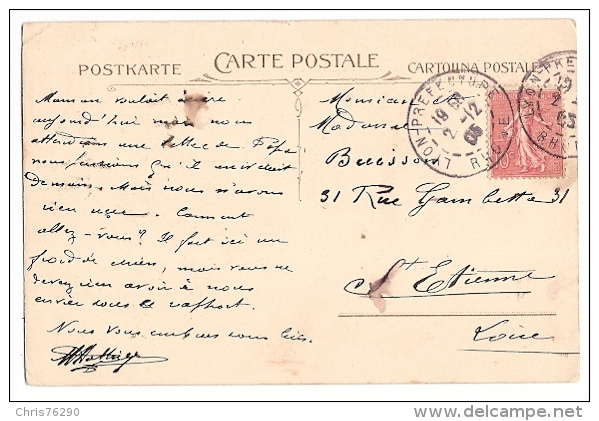 POSTKARTE
CARTE POSTALE
CARTOLINA POSTALE
Maman voulait écrire
aujourd'hui mais nous
attendions une lettre de Papa
nous pensions qu'il écrirait
demain. Mais nous n'avons
rien reçu. Comment
allez-vous? Il fait ici un
froid de chien, mais vous ne
devez rien avoir à nous
envier sous ce rapport.
Nous vous embrassons tous
Monsieur
Madame
Buisson
31 Rue Gambetta 31
St Etienne
Loire
LYON-PREFECTURE
19
2-12
05
RHONE
LYON-PRE
19
2
05
RHONE
Chris76290
http://www.delcampe.net